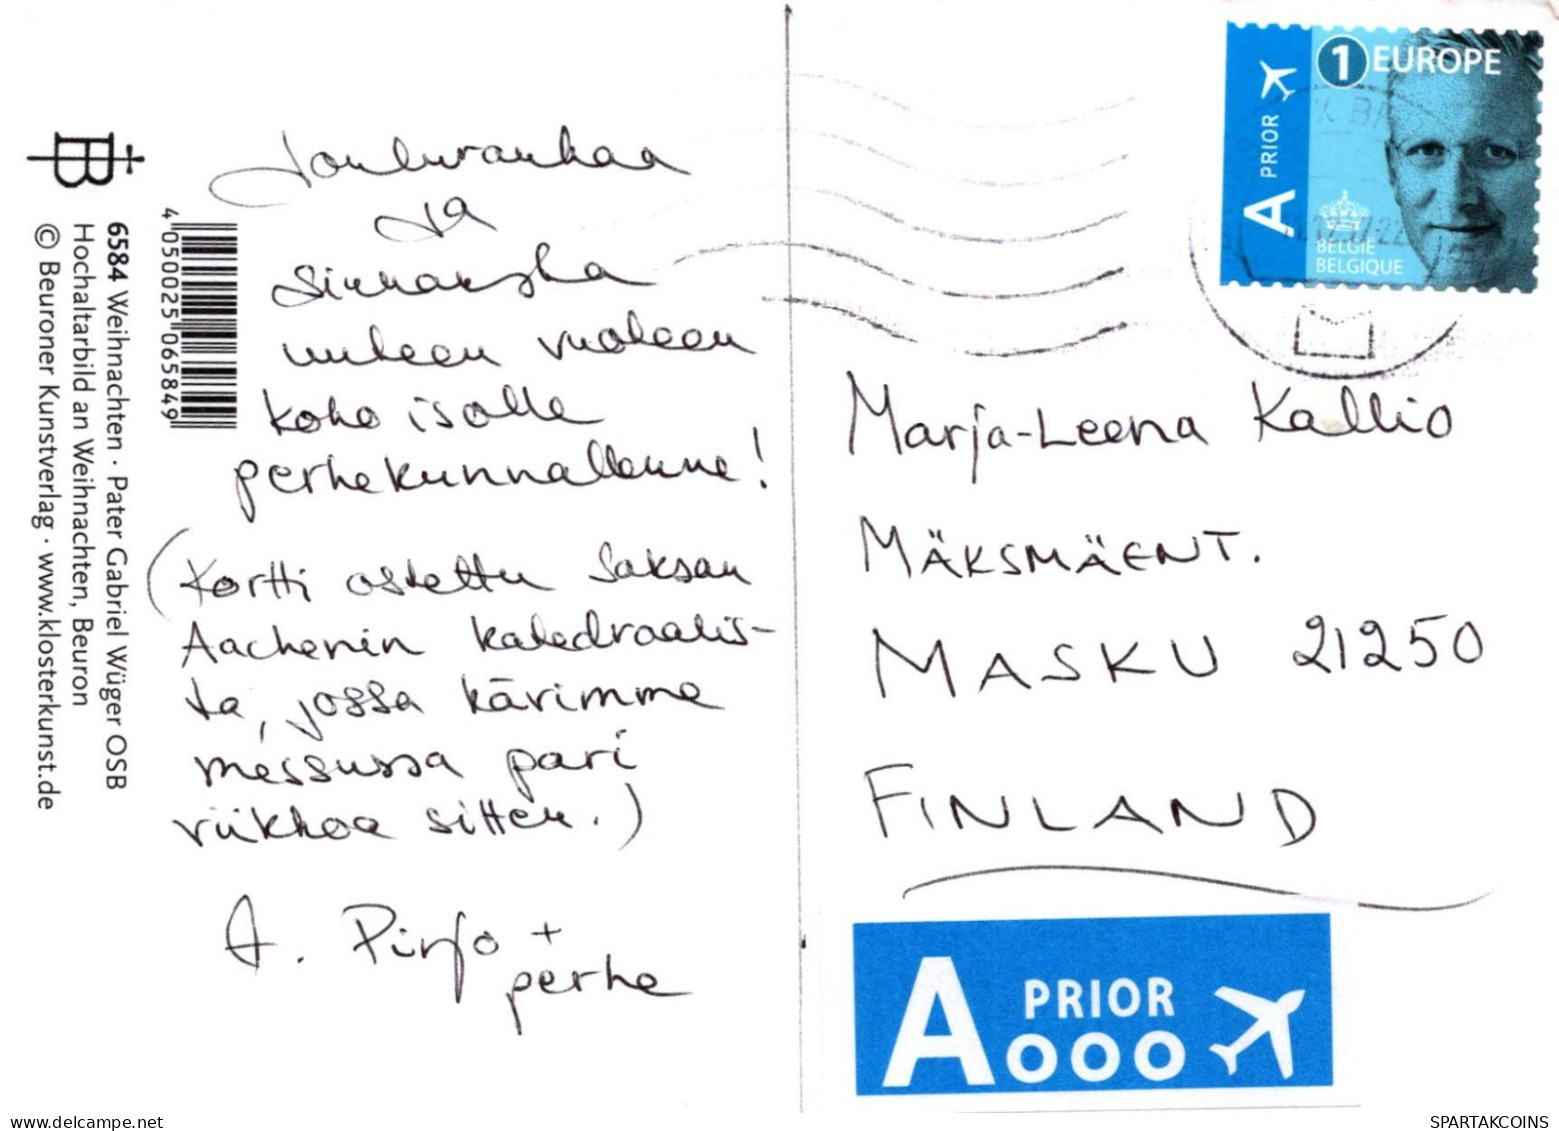 Joulurauhaa
ja
siunausta
uuteen vuoteen
koko isolle
perhekunnallenne!
(Kortti ostettu Saksan
Aachenin katedraalis-
ta, jossa kävimme
messussa pari
viikkoa sitten.)
A. Pirjo +
perhe
6584 Weihnachten · Pater Gabriel Wüger OSB
Hochaltarbild an Weihnachten, Beuron
© Beuroner Kunstverlag · www.klosterkunst.de
B
4 050025 065849
A PRIOR
1 EUROPE
BELGIE
BELGIQUE
Marja-Leena Kallio
MÄKSMÄENT.
MASKU 21250
FINLAND
A PRIOR
SPARTAKCOINS